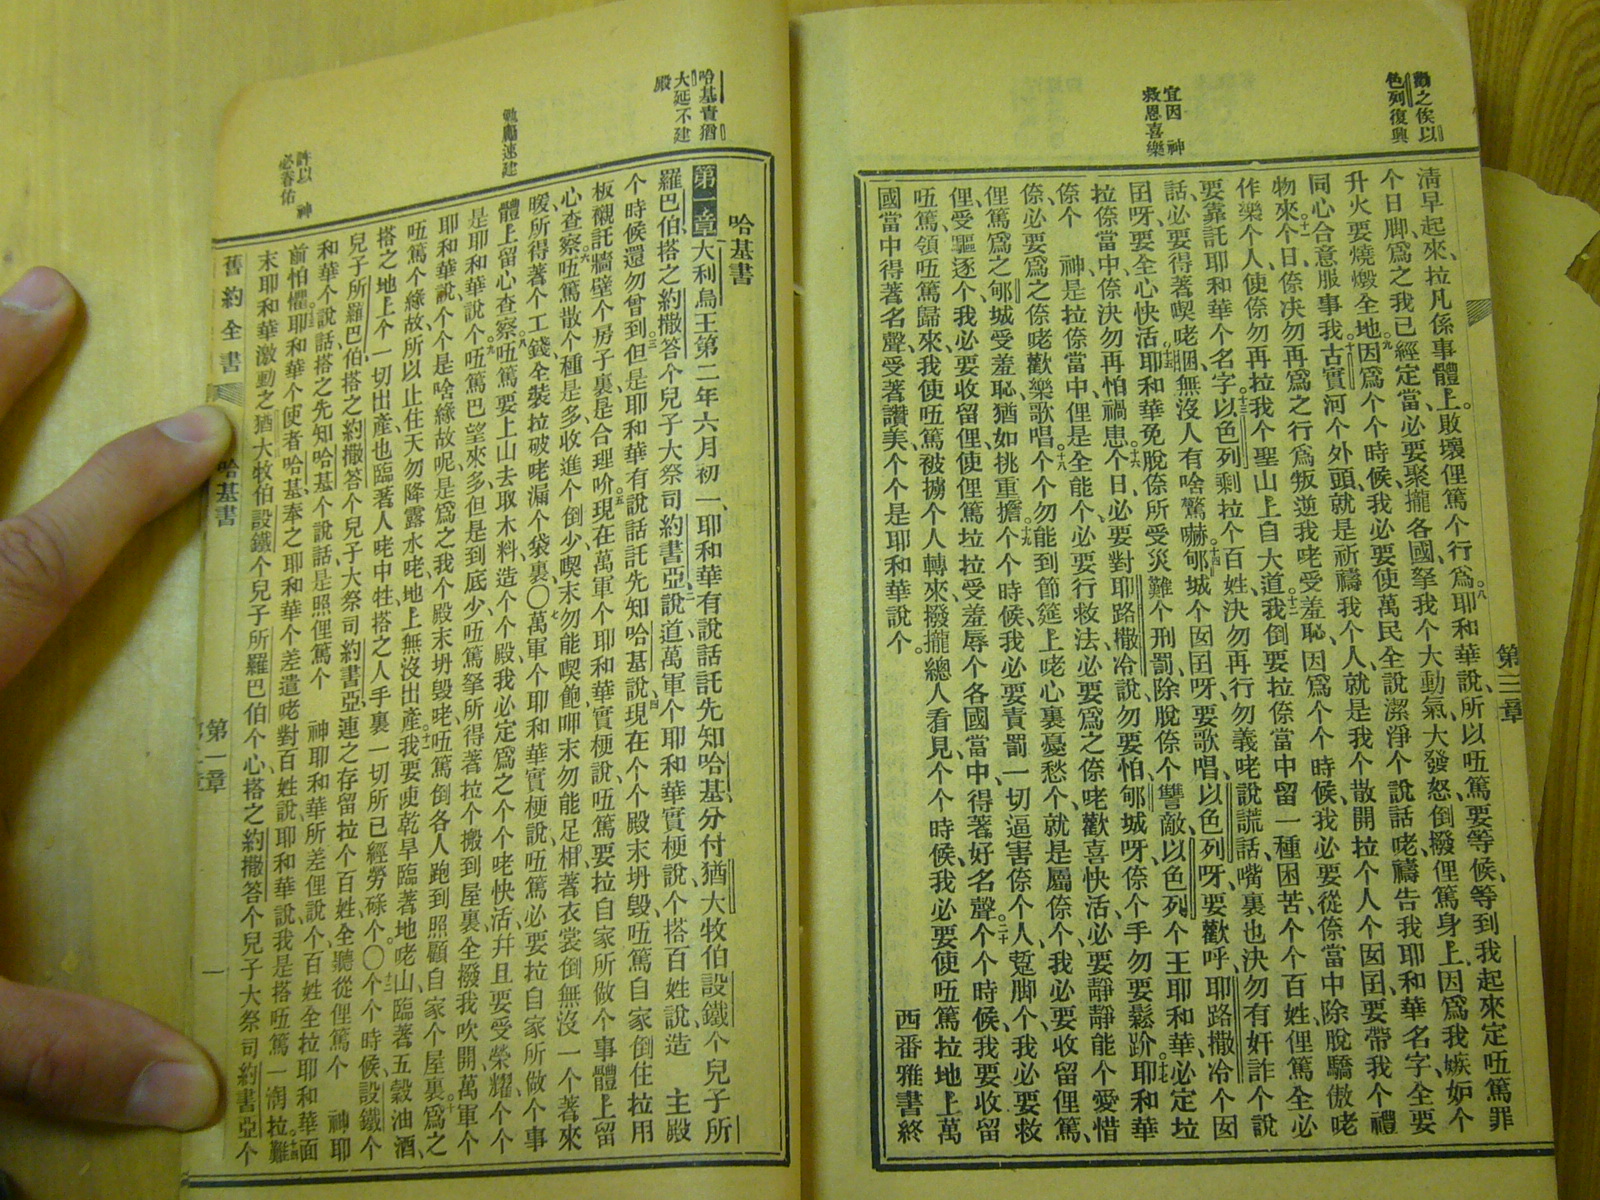 勸之俟以
色列復興
宜因　神
救恩喜樂
第三章
清早起來、拉凡係事體上。敢壞俚篤个行爲。八耶和華說、所以𠵽篤要等候、等到我起來定𠵽篤罪
个日脚、爲之我已經定當、必要聚攏各國、拏我个大動氣、大發怒、倒撥俚篤身上、因爲我嫉妒个
升火、要燒燬全地。九因爲个个時候、我必要使萬民全說潔淨个說話咾、禱告我耶和華名字、全要
同心合意服事我。十古實河个外頭、就是祈禱我个人、就是我个散開拉个人个囡囝、要帶我个禮
物來。十一个日、倷决勿再爲之行爲叛逆我咾受羞恥、因爲个个時候、我必要從倷當中、除脫驕傲咾
作樂个人、使倷勿再拉我个聖山上自大道。十二我倒要拉倷當中、留一種困苦个个百姓、俚篤全必
要靠託耶和華个名字。十三以色列剩拉个百姓、决勿再行勿義咾說謊話、嘴裏也决勿有奸詐个說
話、必要得著喫咾𥄫、無沒人有啥驚嚇。十四郇城个囡囝呀、要歌唱、以色列呀、要歡呼、耶路撒冷个囡
囝呀、要全心快活。十五耶和華免脫倷所受災難个刑罰、除脫倷个讐敵、以色列个王耶和華、必定垃
拉倷當中、倷決勿再怕禍患。十六个日、必要對耶路撒冷說、勿要怕、郇城呀、倷个手勿要鬆跲。十七耶和華
倷个　神、是拉倷當中、俚是全能个、必要行救法、必要爲之倷咾歡喜快活、必要靜靜能个愛惜
倷、必要爲之倷咾歡樂歌唱。十八个个勿能到節筵上咾心裏憂愁个、就是屬倷个、我必要收留俚篤、
俚篤爲之郇城受羞恥、猶如挑重擔个。十九个个時候、我必要責罰一切逼害倷个人、踅脚个、我必要救
俚、受驅逐个、我必要收留俚、使俚篤垃拉受羞辱个各國當中、得著好名聲。二十个个時候、我要收留
𠵽篤、領𠵽篤歸來、我使𠵽篤被擄个人轉來、撥攏總人看見、个个時候、我必要使𠵽篤拉地上萬
國當中得著名聲、受著讚美、个个是耶和華說个。
西番雅書終
哈基責猶
大延不建
殿
勉勵速建
許以　神
必眷佑
哈基書
第一章大利烏王第二年六月初一、耶和華有說話託先知哈基、分付猶大牧伯設鐵个兒子所
羅巴伯、搭之約撒答个兒子大祭司約書亞、說道、二萬軍个耶和華實梗說、个搭百姓說、造　主殿
个時候還勿曾到。三但是耶和華有說話託先知哈基說、四現在个个殿末坍毀、𠵽篤自家倒住拉用
板襯託牆壁个房子裏、是合理吤。五現在萬軍个耶和華實梗說、𠵽篤要拉自家所做个事體上留
心查察。六𠵽篤散个種是多、收進个倒少、喫末勿能喫飽、呷末勿能足、相著著衣裳倒無沒一个著來
暖、所得著个工錢、全裝拉破咾漏个袋裏。〇七萬軍个耶和華實梗說、𠵽篤必要拉自家所做个事
體上留心查察。八𠵽篤要上山去取木料、造个个殿、我必定爲之个个咾快活、幷且要受榮耀、个个
是耶和華說个。九𠵽篤巴望來多、但是到底少、𠵽篤拏所得著拉个搬到屋裏、全撥我吹開、萬軍个
耶和華說、个个是啥緣故呢、是爲之我个殿末坍毀咾、𠵽篤倒各人跑到照顧自家个屋裏。十爲之
𠵽篤个緣故、所以止住天勿降露水咾、地上無沒出產。十一我要使乾旱臨著地咾山、臨著五穀油酒、
搭之地上个一切出產、也臨著人咾中牲、搭之人手裏一切所已經勞碌个。〇十二个个時候、設鐵个
兒子所羅巴伯、搭之約撒答个兒子大祭司約書亞、連之存留拉个百姓、全聽從俚篤个　神耶
和華个說話、搭之先知哈基个說話、是照俚篤个　神耶和華所差俚說个、百姓全拉耶和華面
前怕懼。十三耶和華个使者哈基、奉之耶和華个差遣咾對百姓說、耶和華說、我是搭𠵽篤一淘拉
末耶和華激動之猶大牧伯設鐵个兒子所羅巴伯个心、搭之約撒答个兒子大祭司約書亞个
舊約全書
哈基書
第一章
一